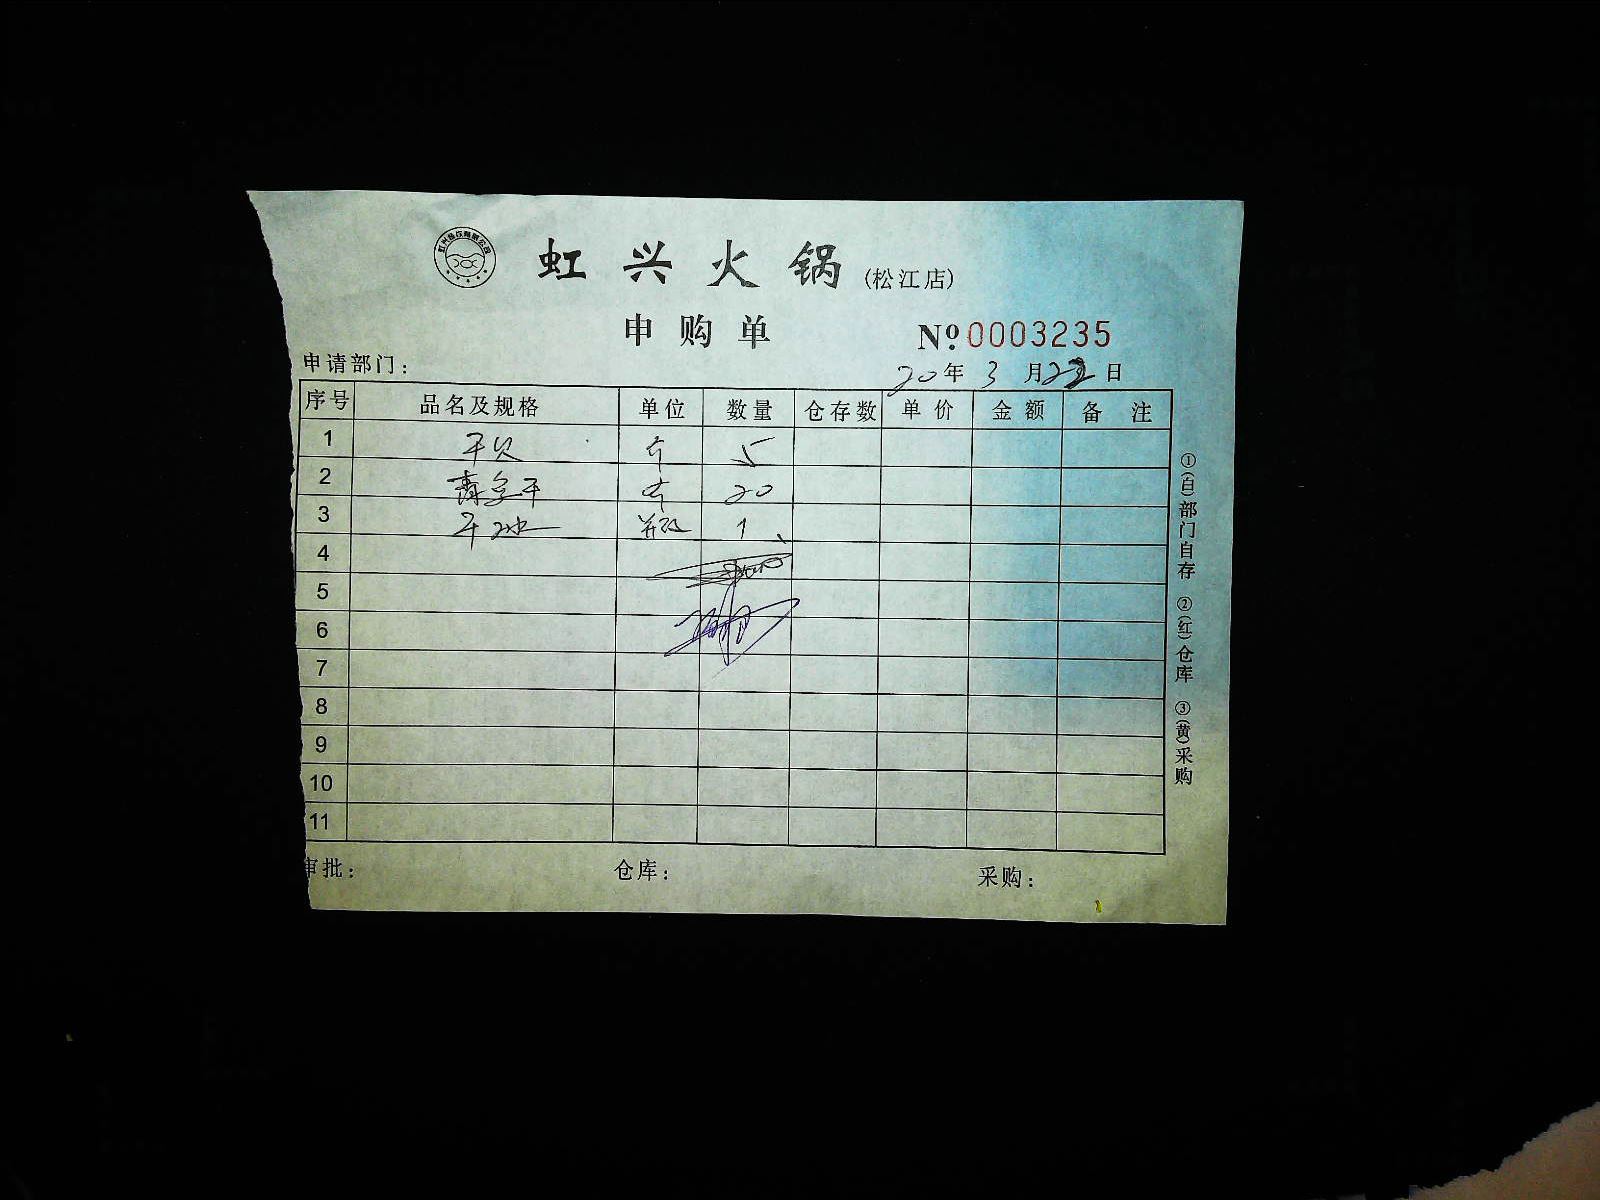 虹兴火锅(松江店)
申购单 Nº0003235
申请部门: 20年3月22日
序号 品名及规格 单位 数量 仓存数 单价 金额 备注
1 干贝 个 5
2 20
3 瓶 1
4
5
6
7
8
9
10
11
审批: 仓库: 采购:
①(白)部门自存 ②(红)仓库 ③(黄)采购